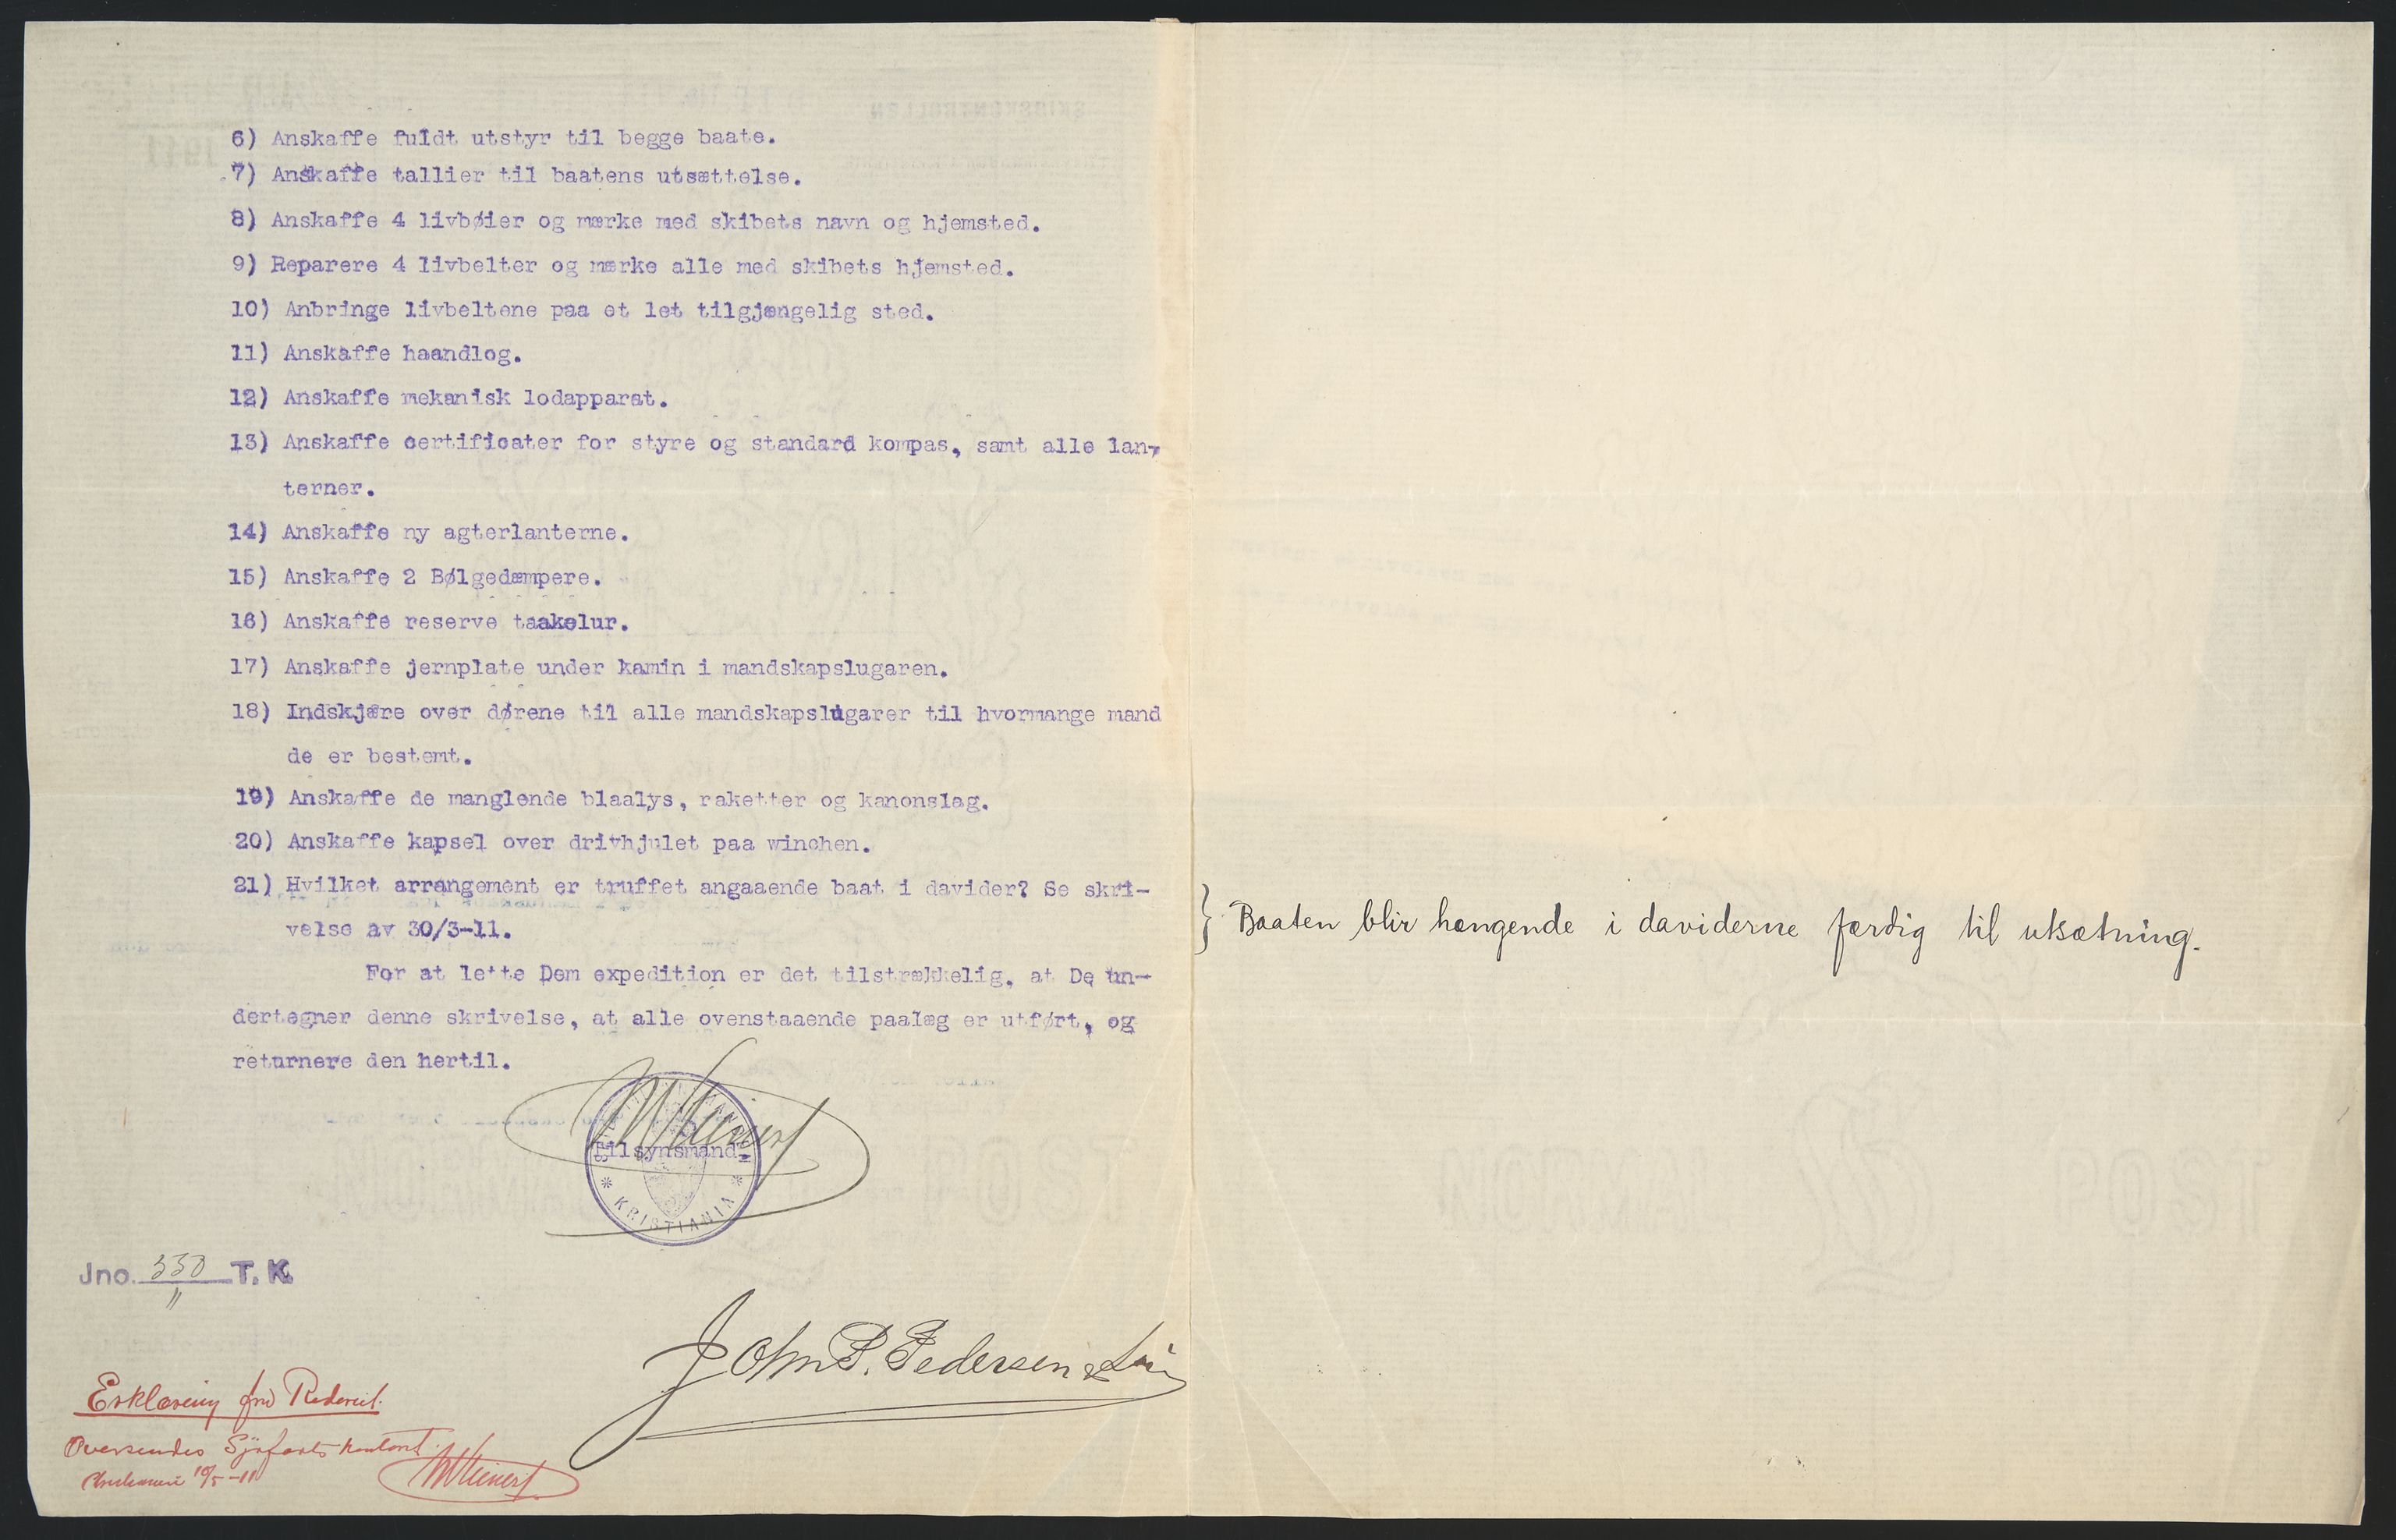 6) Anskaffe fuldt utstyr til begge baate.
7) Anskaffe tallier til baatens utsættelse.
8) Anskaffe 4 livbøier og mærke med skibets navn og hjemsted.
9) Reparere 4 livbelter og mærke alle med skibets hjemsted.
10) Anbringe livbeltene paa et let tilgjængelig sted.
11) Anskaffe haandlog.
12) Anskaffe mekanisk lodapparat.
13) Anskaffe certificater for styre og standard kompas, samt alle lan-
terner.
14) Anskaffe ny agterlanterne.
15) Anskaffe 2 Bølgedæmpere.
16) Anskaffe reserve taakelur.
17) Anskaffe jernplate under kamin i mandskapslugaren.
18) Indskjære over dørene til alle mandskapslugarer til hvormange mand
de er bestemt.
19) Anskaffe de manglende blaalys, raketter og kanonslag.
20) Anskaffe kapsel over drivhjulet paa winchen.
21) Hvilket arrangement er truffet angaaende baat i davider? Se skri-
velse av 30/3-11.
} Baaten blir hængende i daviderne færdig til utsætning.
For at lette Dem expedition er det tilstrækkelig, at De un-
dertegner denne skrivelse, at alle ovenstaaende paalæg er utført, og
returnere den hertil.
Tilsynsmand
* KRISTIANIA *
Jno. 330 T. K.
11
John P. Pedersen & Søn
Erklæring fra Rederiet.
Oversendes Sjøfartskontoret.
10/5-11